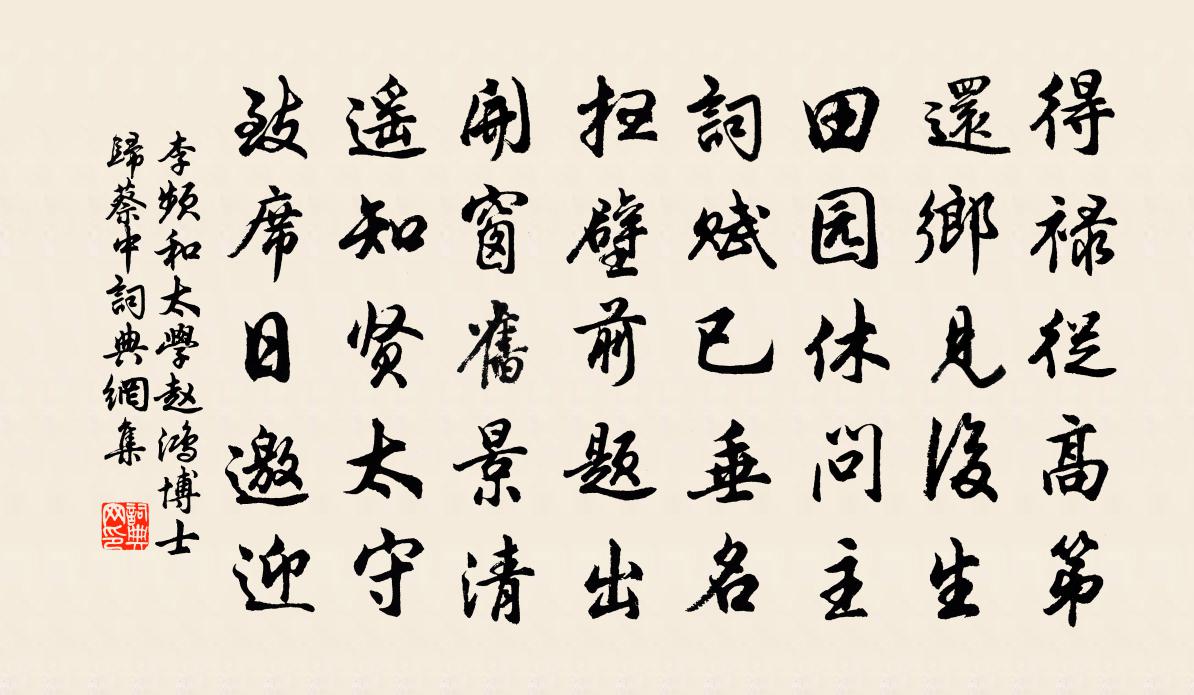 得禄從高第
還鄉見後生
田园休問主
詞賦已垂名
扫壁前题出
開窗舊景清
遥知贤太守
致席日邀迎
李频和太學赵鴻博士
歸蔡中詞典網集
詞典网印